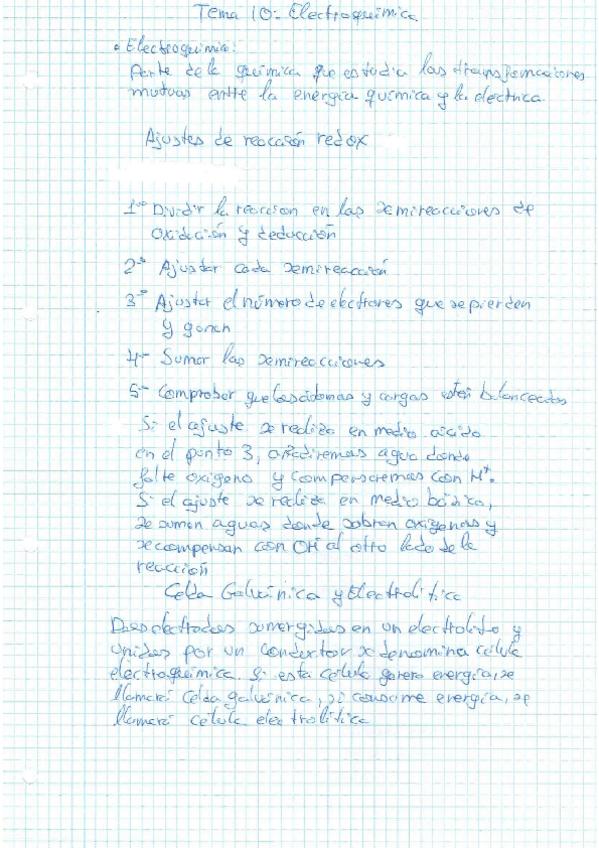 Tema 10: Electroquímica
• Electroquímica:
Parte de la química que estudia las transformaciones
mutuas entre la energía química y la electrica.
Ajustes de reacción redox
1º- Dividir la reaccion en las semireacciones de
oxidación y deducción
2º- Ajustar cada semireacción
3º- Ajustar el número de electrones que se pierden
y ganan
4- Sumar las semireacciones
5- Comprobar que los átomos y cargas estén balanceados
Si el ajuste se realiza en medio ácido
en el punto 3, añadiremos agua donde
falte oxígeno y compensaremos con H⁺.
Si el ajuste se realiza en medio básico,
se suman aguas donde sobren oxígenos y
se compensan con OH⁻ al otro lado de la
reacción
Celda Galvánica y Electrolítica
Dos electrodos sumergidos en un electrolito y
unidos por un conductor se denomina célula
electroquímica. Si esta célula genera energía, se
llamará celda galvánica, si consume energía, se
llamará célula electrolítica